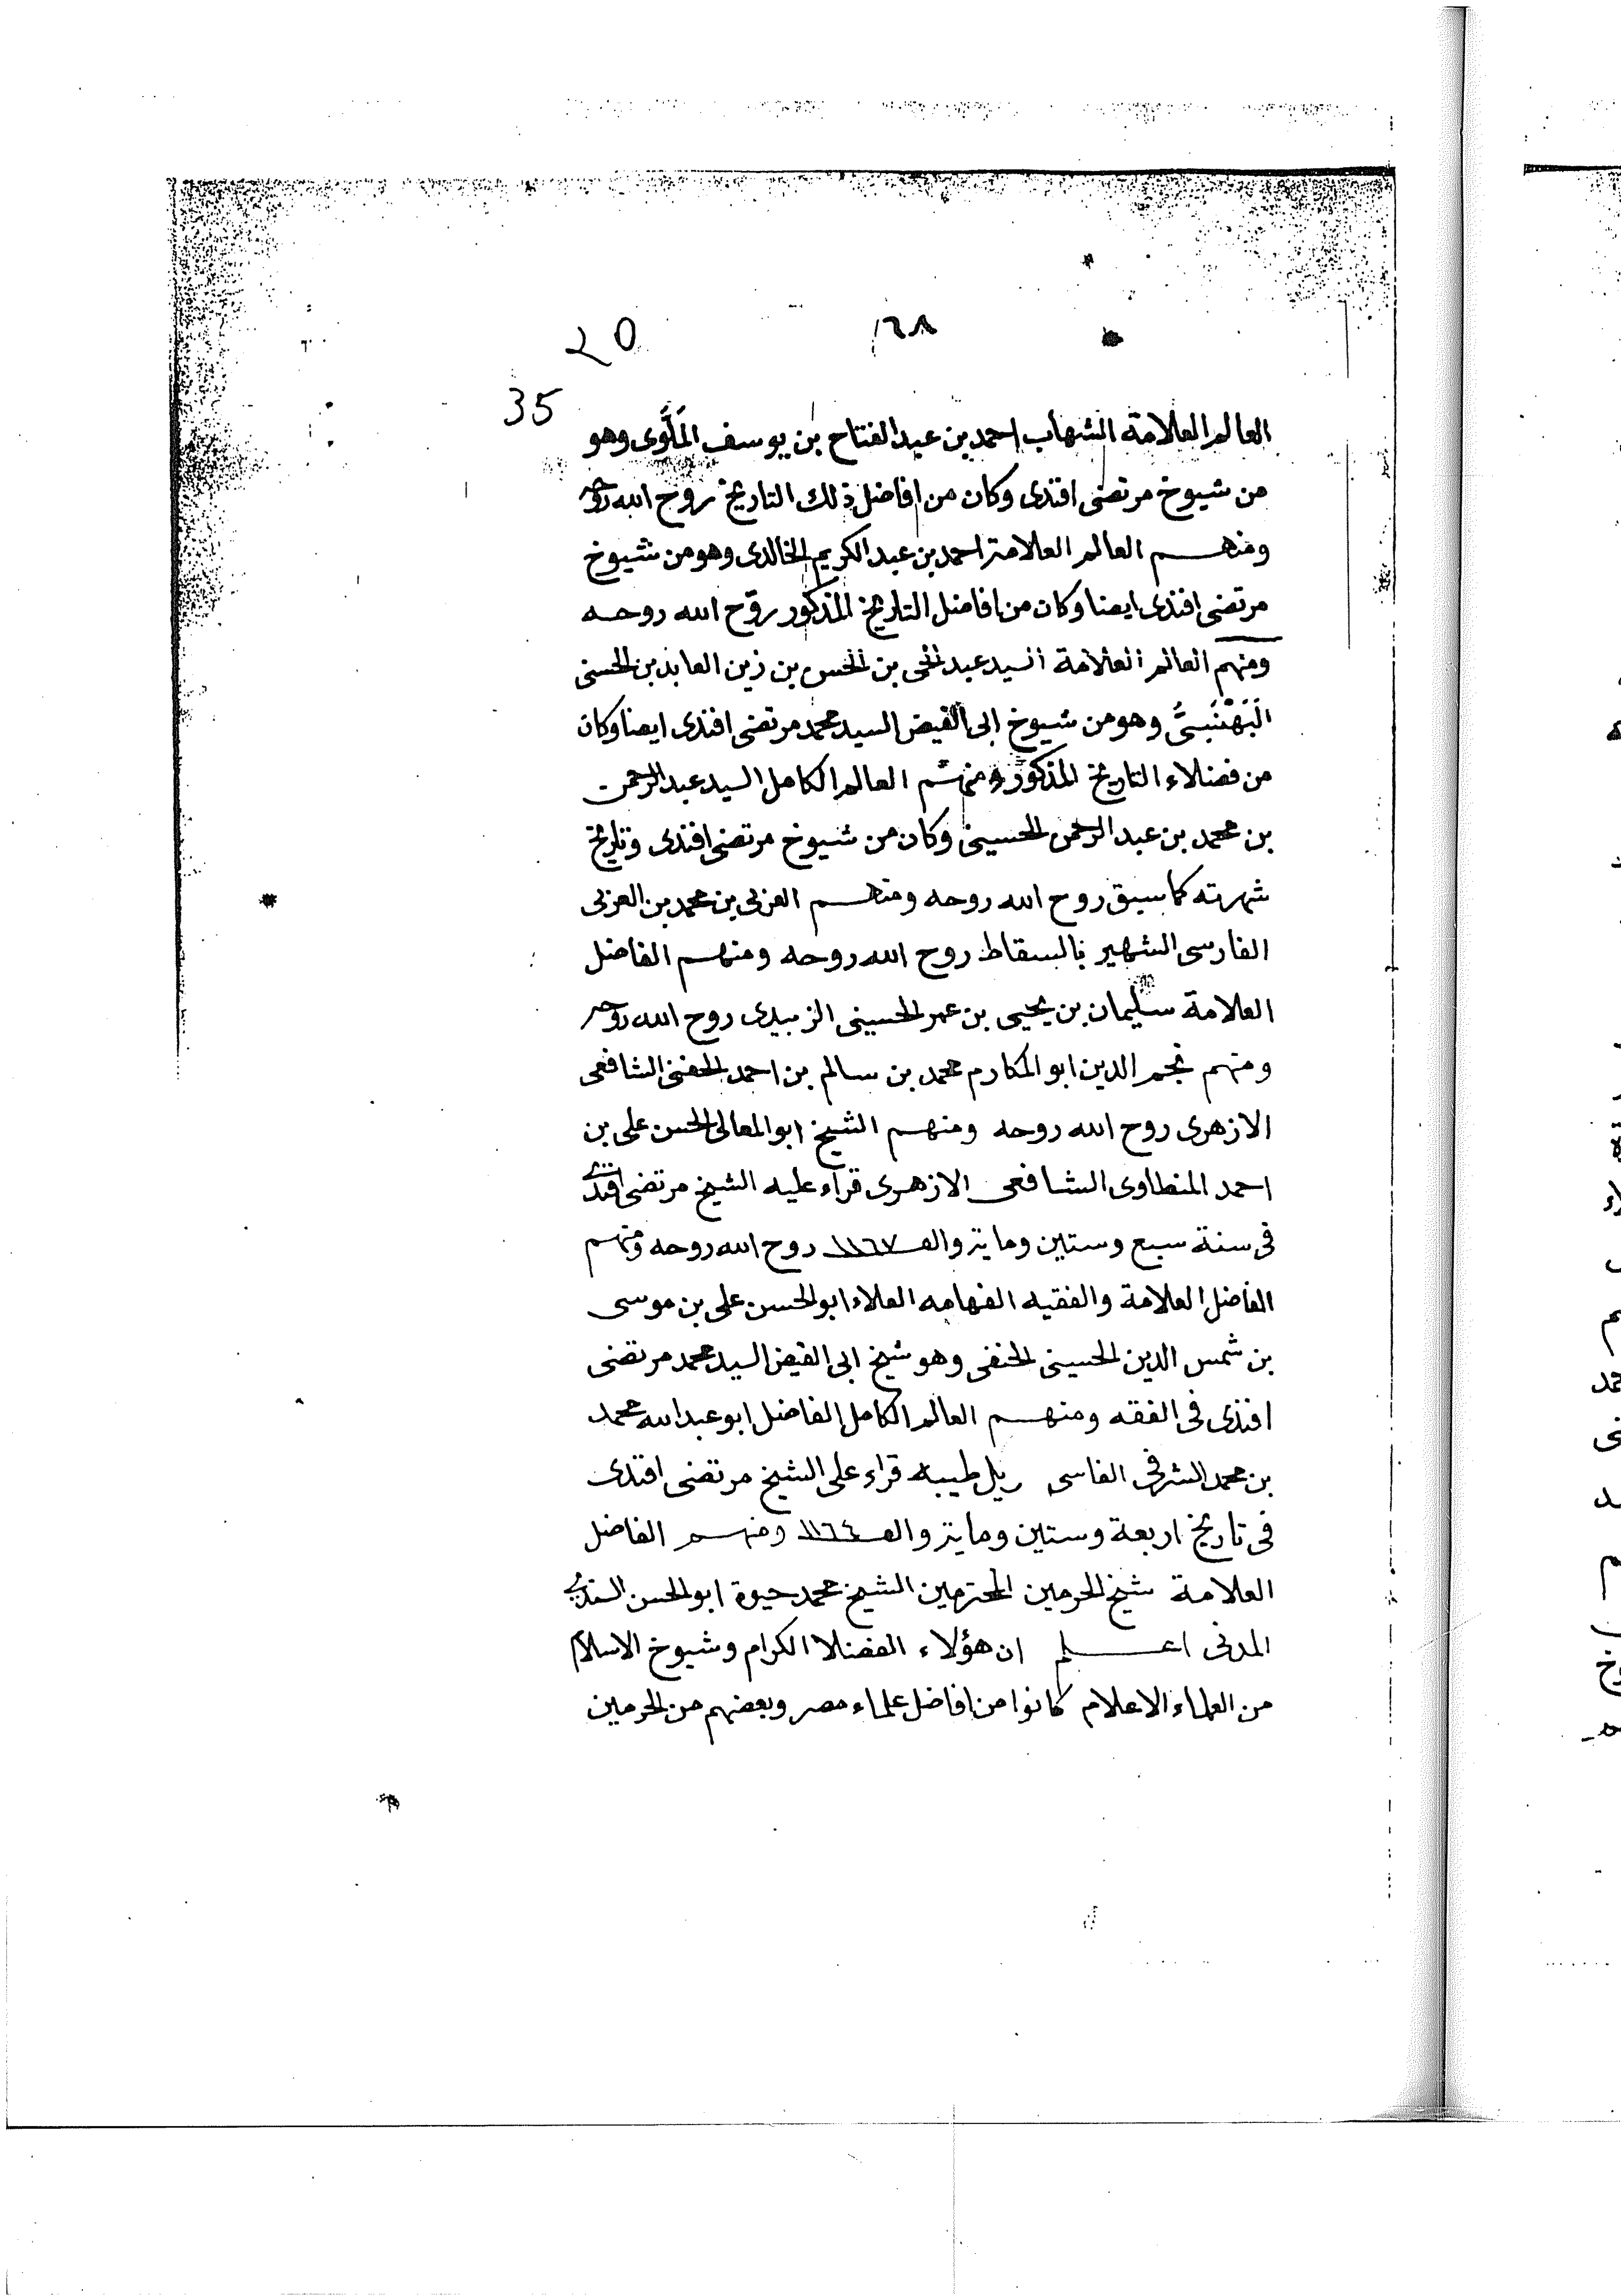 20
١٢٨
35
العالم العلامة الشهاب احمد بن عبد الفتاح بن يوسف المَلَّوى وهو
من شيوخ مرتضى افندى وكان من افاضل ذلك التاريخ روح الله روحه
ومنهم العالم العلامة احمد بن عبد الكريم الخالدى وهو من شيوخ
مرتضى افندى ايضا وكان من افاضل التاريخ المذكور روّح الله روحه
ومنهم العالم العلامة السيد عبد الحى بن الحسن بن زين العابدين الحسنى
البَهْنَسىّ وهو من شيوخ ابى الفيض السيد محمد مرتضى افندى ايضا وكان
من فضلاء التاريخ المذكور ومنهم العالم الكامل السيد عبد الرحمن
بن محمد بن عبد الرحمن الحسينى وكان من شيوخ مرتضى افندى وتاريخ
شهرته كما سبق روح الله روحه ومنهم العزبى بن محمد بن العزبى
الفارسى الشهير بالسقاط روح الله روحه ومنهم الفاضل
العلامة سليمان بن يحيى بن عمر الحسينى الزبيدى روح الله روحه
ومنهم نجم الدين ابو المكارم محمد بن سالم بن احمد الحفنى الشافعى
الازهرى روح الله روحه ومنهم الشيخ ابو المعالى الحسن على بن
احمد المنطاوى الشافعى الازهرى قراء عليه الشيخ مرتضى افندى
فى سنة سبع وستين وماية والف ١١٦٧ روح الله روحه ومنهم
الفاضل العلامة والفقيه الفهامه العلاء ابو الحسن على بن موسى
بن شمس الدين الحسينى الحنفى وهو شيخ ابى الفيض السيد محمد مرتضى
افندى فى الفقه ومنهم العالم الكامل الفاضل ابو عبد الله محمد
بن محمد الشرفى الفاسى نزيل طيبه قراء على الشيخ مرتضى افندى
فى تاريخ اربعة وستين وماية والف ١١٦٤ ومنهم الفاضل
العلامة شيخ الحرمين المحترمين الشيخ محمد حيوة ابو الحسن السندى
المدنى اعلم ان هؤلاء الفضلا الكرام وشيوخ الاسلام
من العلماء الاعلام كانوا من افاضل علماء مصر وبعضهم من الحرمين